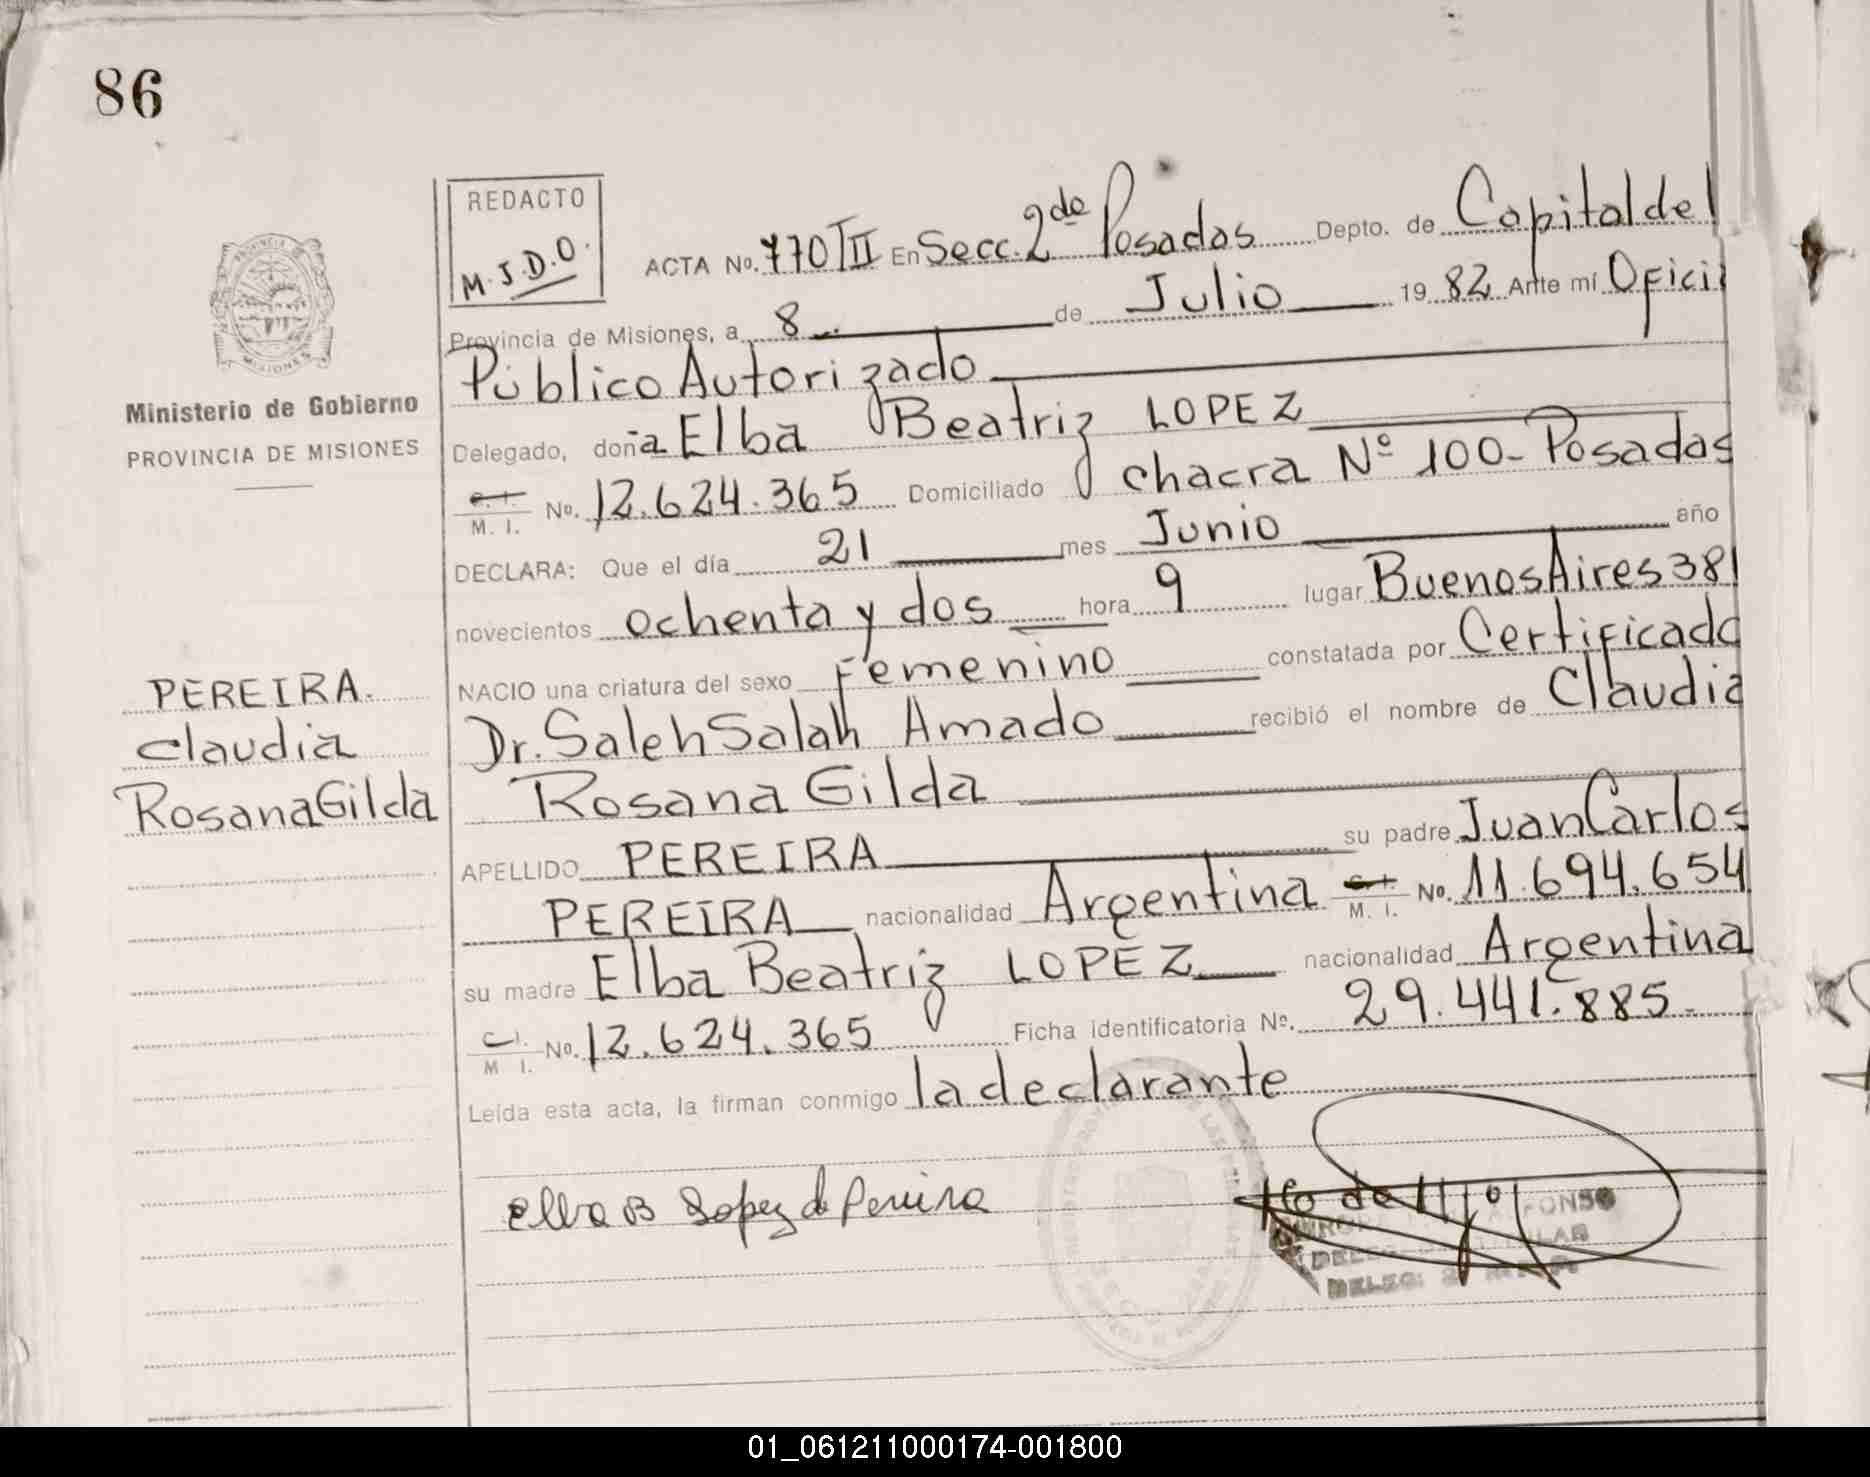 86
REDACTO
M.J.D.O.
ACTA No. 770/II En Secc. 2da Posadas Depto. de Capital del
Provincia de Misiones, a 8 de Julio 19 82 Ante mí Ofici
Público Autorizado
Ministerio de Gobierno
PROVINCIA DE MISIONES
Delegado, doña Elba Beatriz LOPEZ
M. I. No. 12.624.365 Domiciliado chacra Nº 100- Posadas
DECLARA: Que el día 21 mes Junio año
novecientos ochenta y dos hora 9 lugar Buenos Aires 381
NACIO una criatura del sexo Femenino constatada por Certificado
Dr. Saleh Salah Amado recibió el nombre de Claudia
Rosana Gilda
PEREIRA.
Claudia
Rosana Gilda
APELLIDO PEREIRA su padre Juan Carlos
PEREIRA nacionalidad Argentina M. I. No. 11.694.654
su madre Elba Beatriz LOPEZ nacionalidad Argentina
C.I. M I. No. 12.624.365 Ficha identificatoria Nº. 29.441.885.-
Leída esta acta, la firman conmigo la declarante
Elba B Lopez de Pereira
01_061211000174-001800